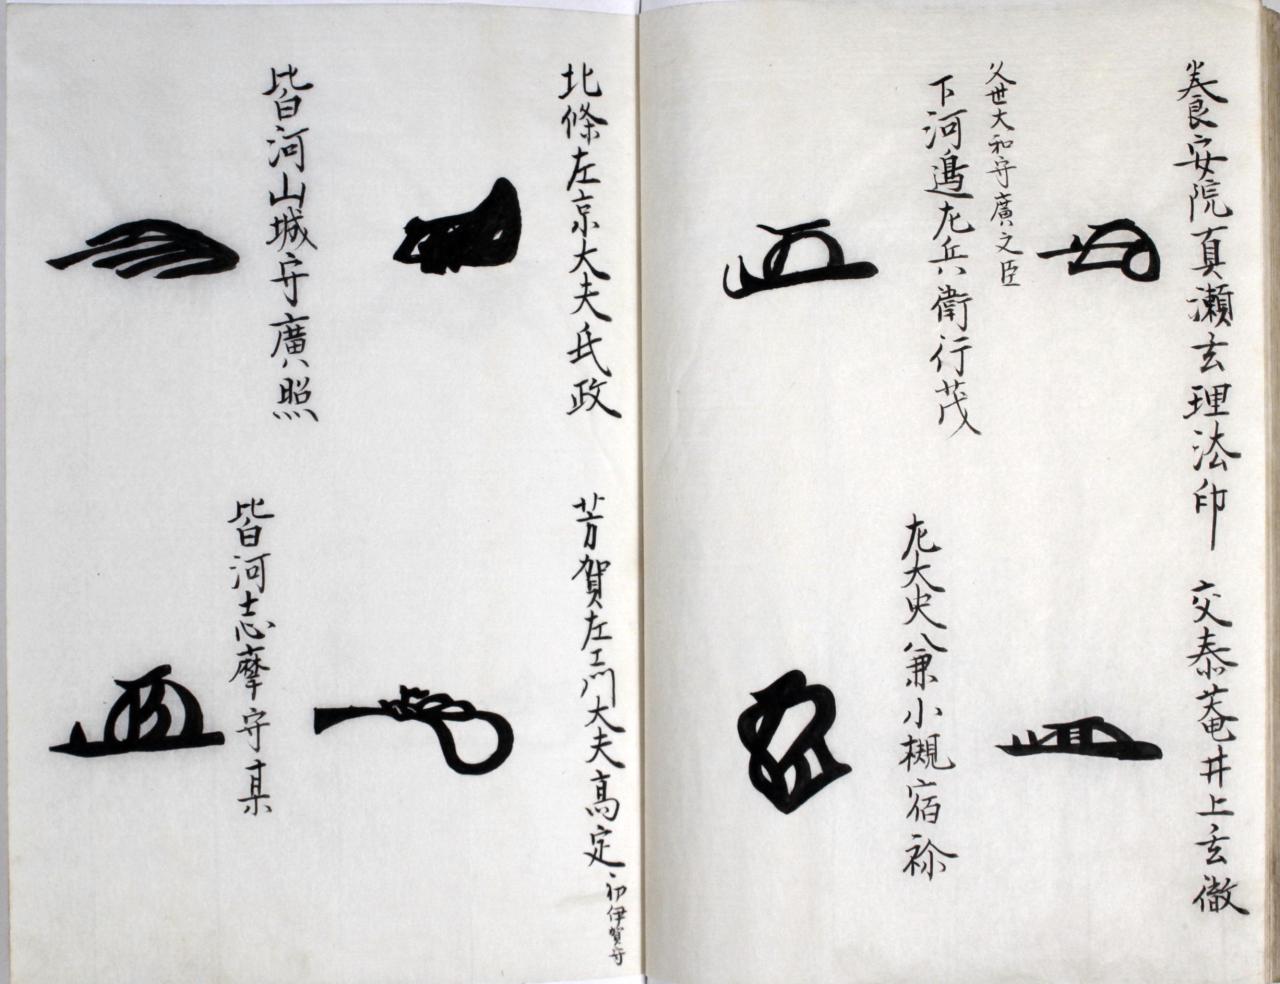 養安院真瀬玄理法印
交泰菴井上玄徹
久世大和守廣之臣
下河邉左兵衛行茂
左大史兼小槻宿祢
北條左京大夫氏政
芳賀左エ門大夫高定
初伊賀守
皆河山城守廣照
皆河志摩守某